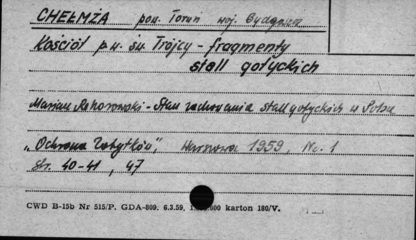 CHEŁMŻA pow. Toruń woj. Bydgoszcz
Kościół p.w. św. Trójcy - fragmenty
stall gotyckich
Marian Rehorowski - Stan zachowania stall gotyckich w Polsce
„Ochrona Zabytków”, Warszawa 1959, Nr. 1
Str. 40-41, 47
CWD B-15b Nr 515/P. GDA-809. 6.3.59. 000 karton 180/V.